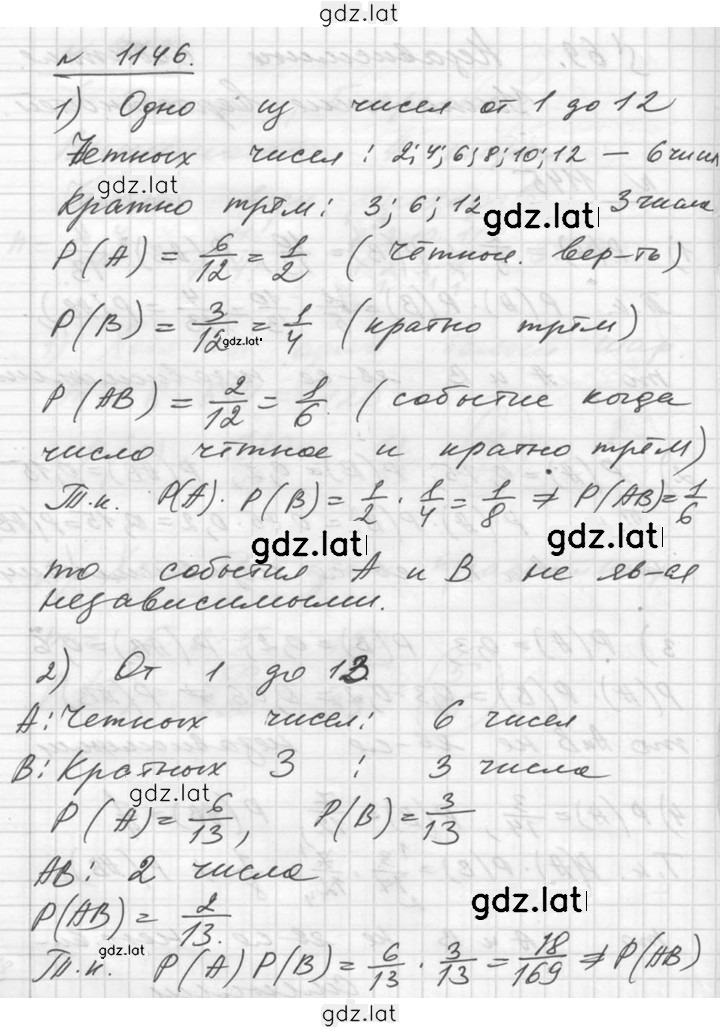 gdz.lat
№ 1146.
1) Одно из чисел от 1 до 12
Четных чисел: 2; 4; 6; 8; 10; 12 — 6 чисел
gdz.lat
Кратно трём: 3; 6; 12 gdz.lat 3 числа
P(A) = 6/12 = 1/2 (чётное. вер-ть)
P(B) = 3/12 = 1/4 (кратно трём)
gdz.lat
P(AB) = 2/12 = 1/6. (событие когда
число чётное и кратно трём)
Т.к. P(A) · P(B) = 1/2 · 1/4 = 1/8 ≠ P(AB) = 1/6
gdz.lat gdz.lat
то события A и B не яв-ся
независимыми.
2) От 1 до 13
A: Четных чисел: 6 чисел
B: Кратных 3 : 3 числа
gdz.lat
P(A) = 6/13, P(B) = 3/13
AB: 2 числа
gdz.lat
P(AB) = 2/13.
gdz.lat
Т.к. P(A) P(B) = 6/13 · 3/13 = 18/169 ≠ P(AB)
gdz.lat